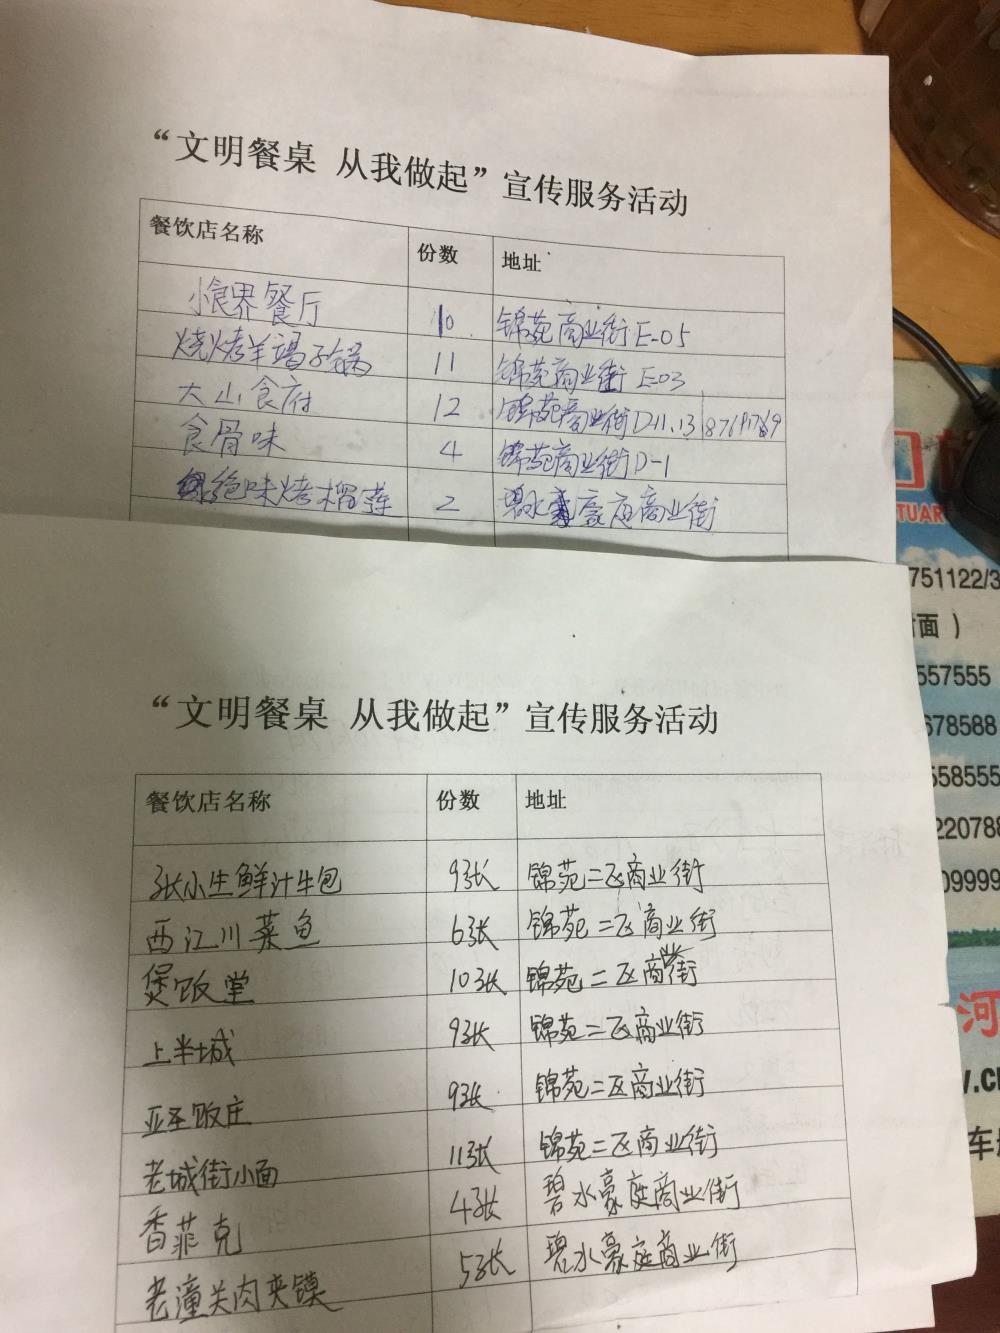 “文明餐桌 从我做起”宣传服务活动
餐饮店名称 份数 地址
小食界餐厅 10 锦苑商业街E-05
烧烤羊蝎子锅 11 锦苑商业街E-03
大山食府 12 锦苑商业街D-11.13
食骨味 4 锦苑商业街D-1
绝味烤榴莲 2 碧水豪庭商业街
“文明餐桌 从我做起”宣传服务活动
餐饮店名称 份数 地址
张小生鲜汁牛包 9张 锦苑二区商业街
西江川菜鱼 6张 锦苑二区商业街
煲饭堂 10张 锦苑二区商业街
上半城 9张 锦苑二区商业街
亚圣饭庄 9张 锦苑二区商业街
老城街小面 11张 锦苑二区商业街
香菲克 4张 碧水豪庭商业街
老潼关肉夹馍 5张 碧水豪庭商业街
TUAR
751122/3
面 )
557555
678588
58555
220788
09999
河
车